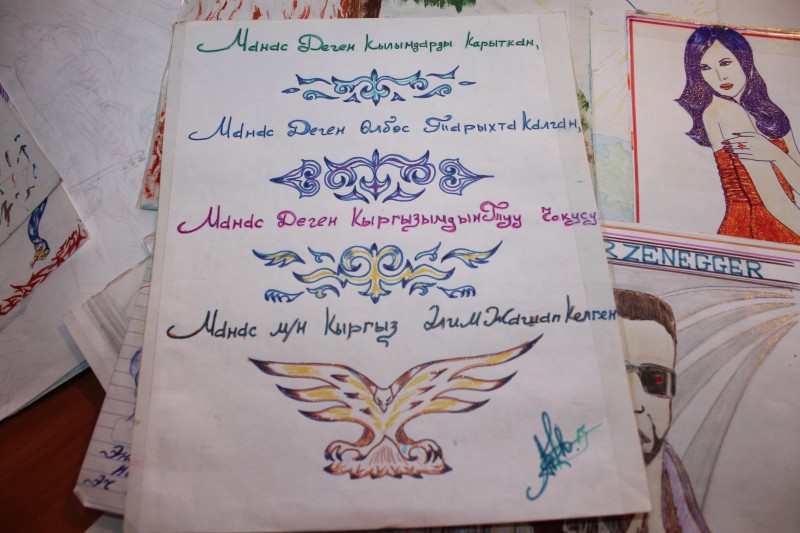 Манас Деген Кылымдарды Карыткан,
Манас Деген Өлбөс Тарыхта Калган,
Манас Деген Кыргызымдын Туу Чокусу
Манас м/н Кыргыз Элим Жашап Келген
RZENEGGER